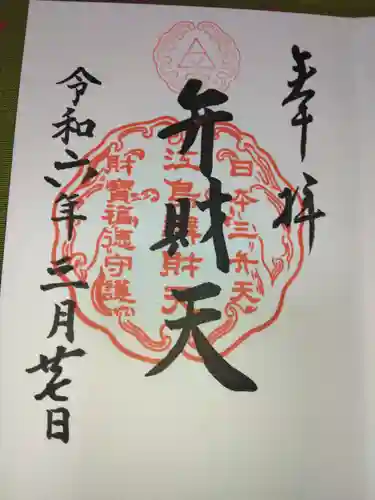 奉拝
日本三弁天
弁財天
江島辨財天
財寶福徳守護
令和六年三月廿七日